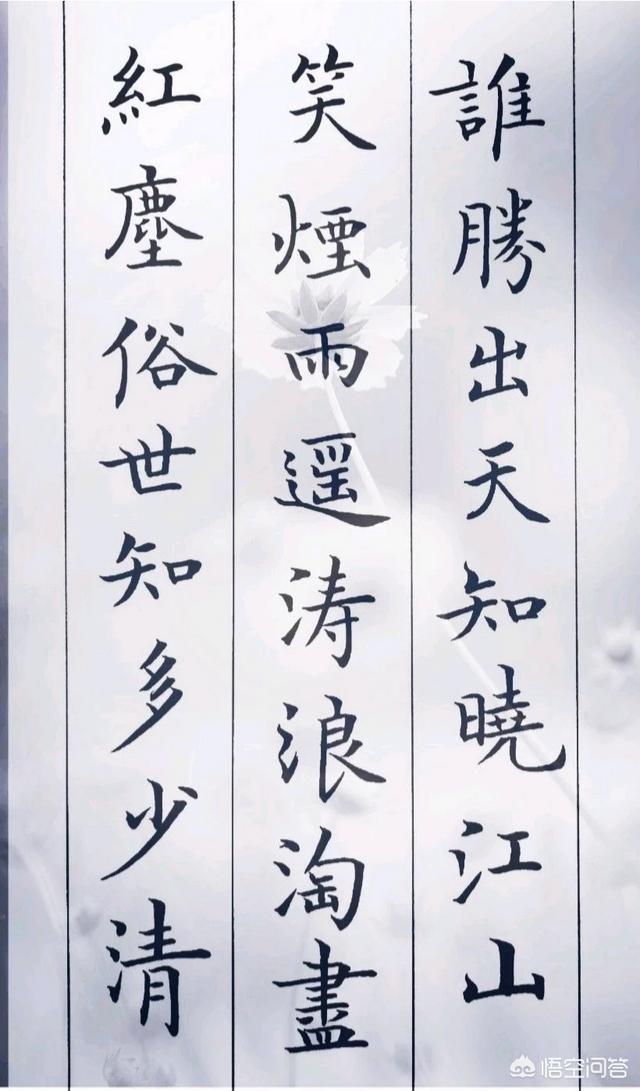 誰勝出天知曉江山
笑煙雨遥涛浪淘盡
紅塵俗世知多少清
悟空问答